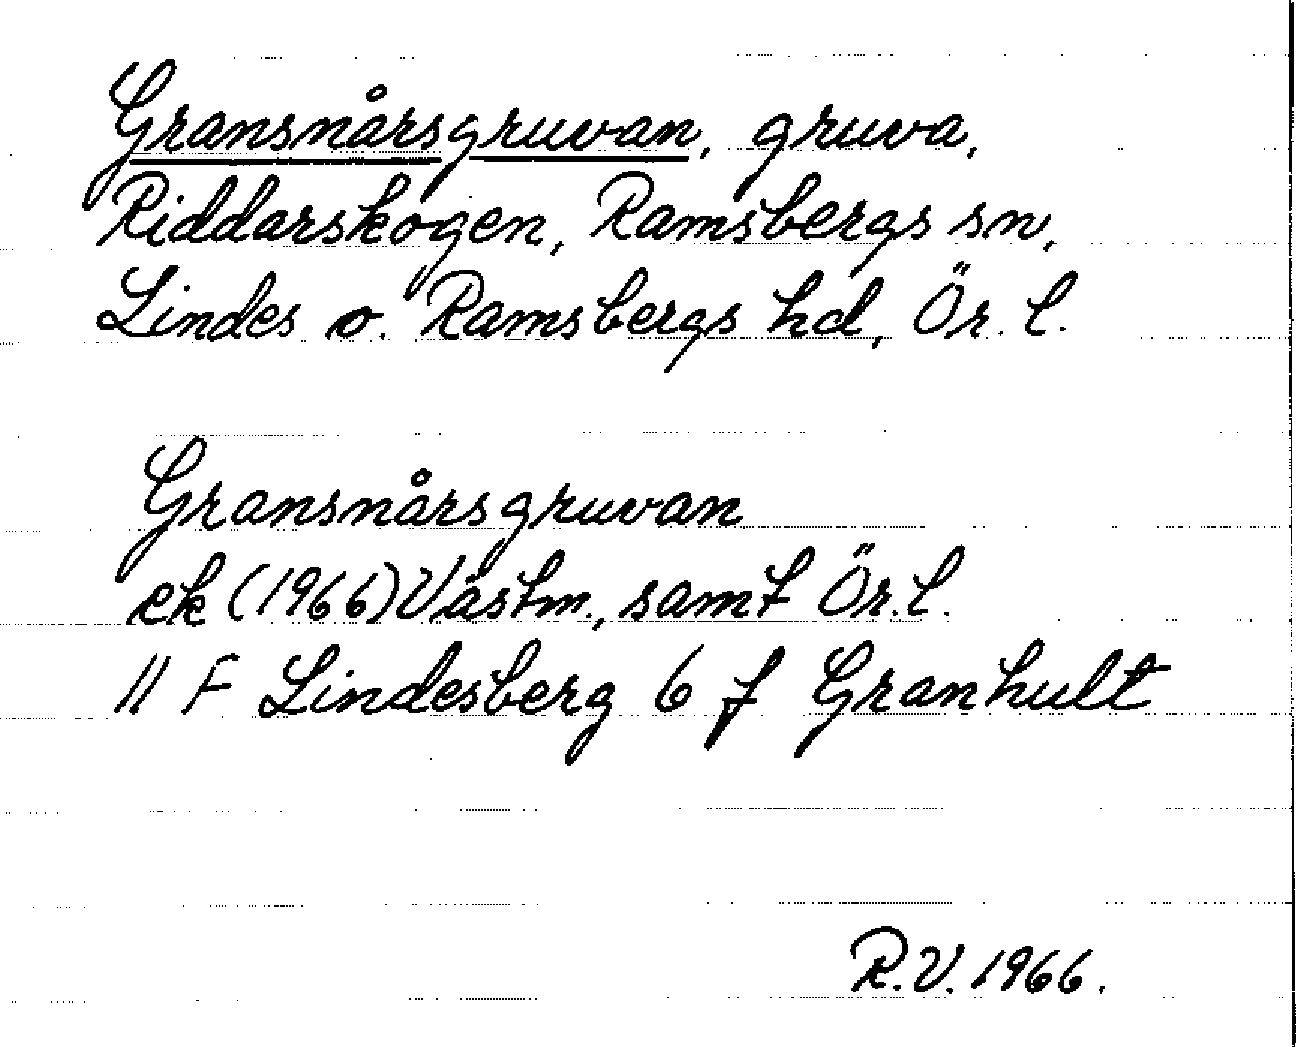 Gransnårsgruvan, gruva,
Riddarskogen, Ramsbergs sn,
Lindes o. Ramsbergs hd, Ör. l.
Gransnårsgruvan
ek (1966) Västm., samt Ör. l.
11 F Lindesberg 6 f Granhult
R.V. 1966.